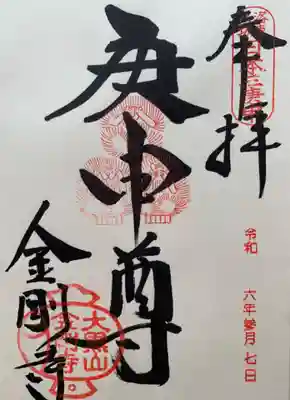 奉拝
日本三庚申
庚申尊
令和 六年 參月 七日
金剛寺
大黒山
金剛寺